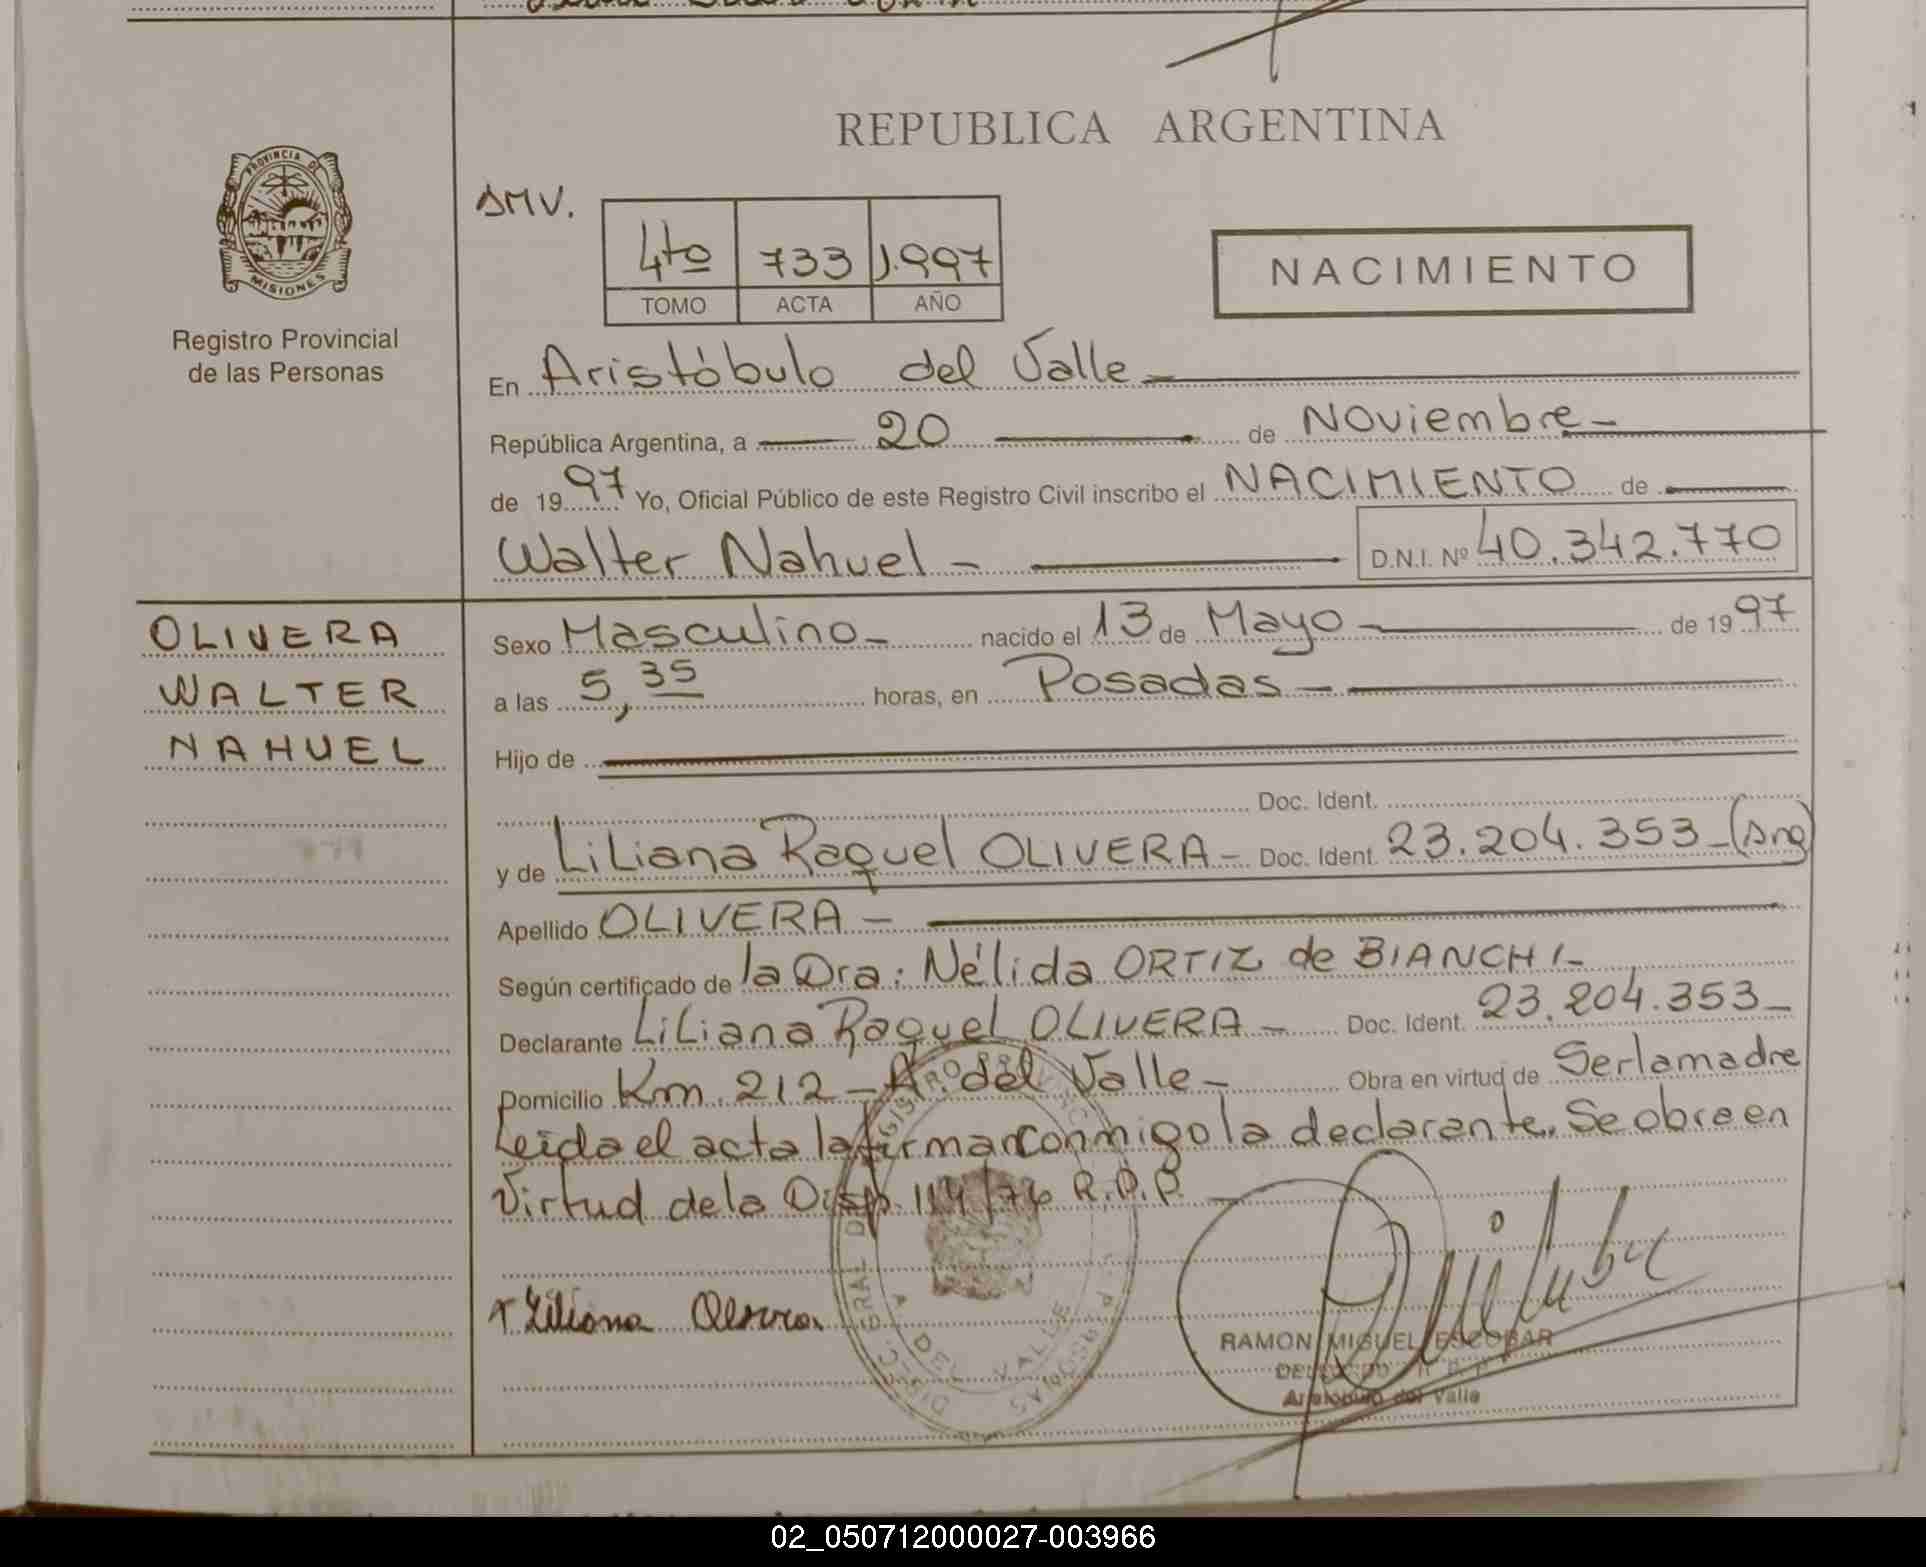 REPUBLICA ARGENTINA
PROVINCIA DE
MISIONES
Registro Provincial
de las Personas
SMV.
4to 733 1.997
TOMO ACTA AÑO
NACIMIENTO
En Aristóbulo del Valle
República Argentina, a 20 de Noviembre
de 1997 Yo, Oficial Público de este Registro Civil inscribo el NACIMIENTO de
Walter Nahuel D.N.I. Nº 40.342.770
OLIVERA
WALTER
NAHUEL
Sexo Masculino nacido el 13 de Mayo de 1997
a las 5,35 horas, en Posadas
Hijo de
Doc. Ident.
y de Liliana Raquel OLIVERA Doc. Ident. 23.204.353
Apellido OLIVERA
Según certificado de la Dra: Nélida ORTIZ de BIANCHI
Declarante Liliana Raquel OLIVERA Doc. Ident. 23.204.353
Domicilio Km. 212 - A. del Valle Obra en virtud de Ser la madre
Leida el acta la firman conmigo la declarante. Se obre en
Virtud de la Disp. 114/76 R.P.P.
Liliana Olivera
A. DEL VALLE
RAMON MIGUEL ESCOBAR
Aristóbulo del Valle
02_050712000027-003966